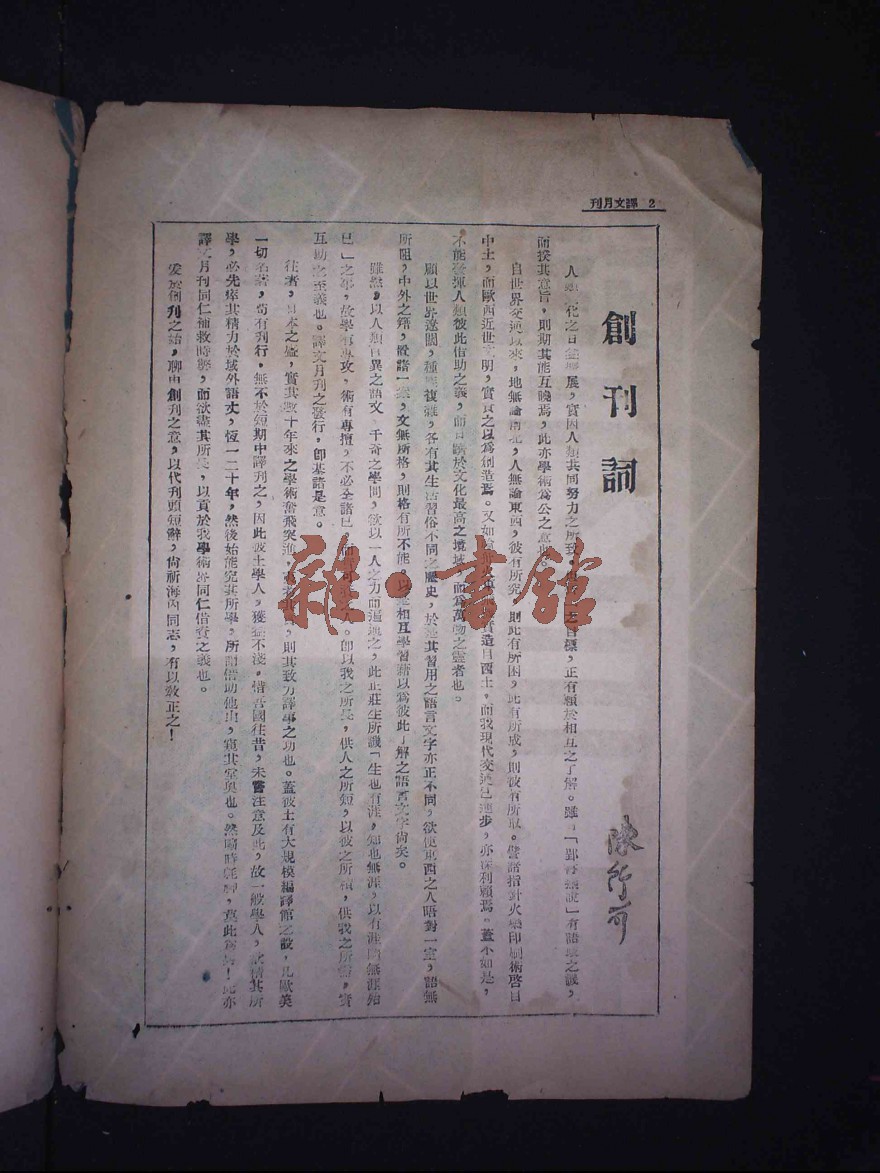 2 譯文月刊
創刊詞
陳行可
人類文化之日發展,實因人類共同努力之所致,標,正有賴於相互之了解。雖「有語域之譏,
而揆其意旨,則期其能互曉焉,此亦學術爲公之意也。
自世界交通以來,地無論南北,人無論東西,彼有所究,則此有所困,此有所成,則彼有所取。譬諸指針火藥印刷術啓自
中土,而歐西近世文明,實賴之以爲創造焉。又如造自西土,而我現代交通已進步,亦深利賴焉。蓋不如是,
不能發揮人類彼此借助之義,而日躋於文化最高之境域,而爲萬物之靈者也。
顧以世界遼闊,種族複雜,各有其生活習俗不同之歷史,於是其習用之語言文字亦正不同,欲使東西之人晤對一室,語無
所阻,中外之籍,設諸一案,文無所格,則格有所不能。以是相互學習藉以爲彼此了解之語言文字尚矣。
雖然,以人類百異之語文,千奇之學問,欲以一人之力而通之,此正莊生所譏「生也有涯,知也無涯,以有涯隨無涯殆
已」之事,故學有專攻,術有專擅,不必全諸己,卽以我之所長,供人之所短,以彼之所,供我之所,實
互助之至義也。譯文月刊之發行,卽基諸是意。
往者,日本之盛,實其數十年來之學術奮飛突進,則其致力譯事之功也。蓋彼土有大規模編譯館之設,凡歐美
一切名著,苟有刊行,無不於短期中譯刊之,因此彼土學人,獲益不淺。惜吾國往昔,未嘗注意及此,故一般學人,欲精其所
學,必先瘁其精力於域外語文,恆一二十年,然後始能究其所學,所謂借助他山,窺其堂奧也。然曠時耗神,莫此爲甚!此亦
譯文月刊同仁補救時弊,而欲盡其所長,以貢於我學術界同仁借資之義也。
爰於創刊之始,聊申創刊之意,以代刊頭短辭,尚祈海內同志,有以敎正之!
雜·書館